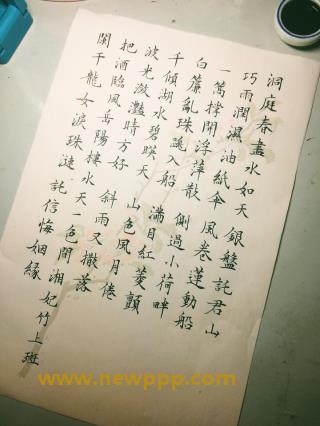 洞庭春盡水如天 銀盤託君山
巧雨潤濕油紙傘 風卷蓮動船
一篙撐開浮萍散 側過小荷畔
白簾亂珠跳入船 滿目紅菱顫
千傾湖水碧映天 山色風月倦
波光瀲灩晴方好 斜雨又撒落
把酒臨風岳陽樓 水天一色間
闌干龍女淚珠漣 託信悔姻緣 湘妃竹上斑
www.newppp.com